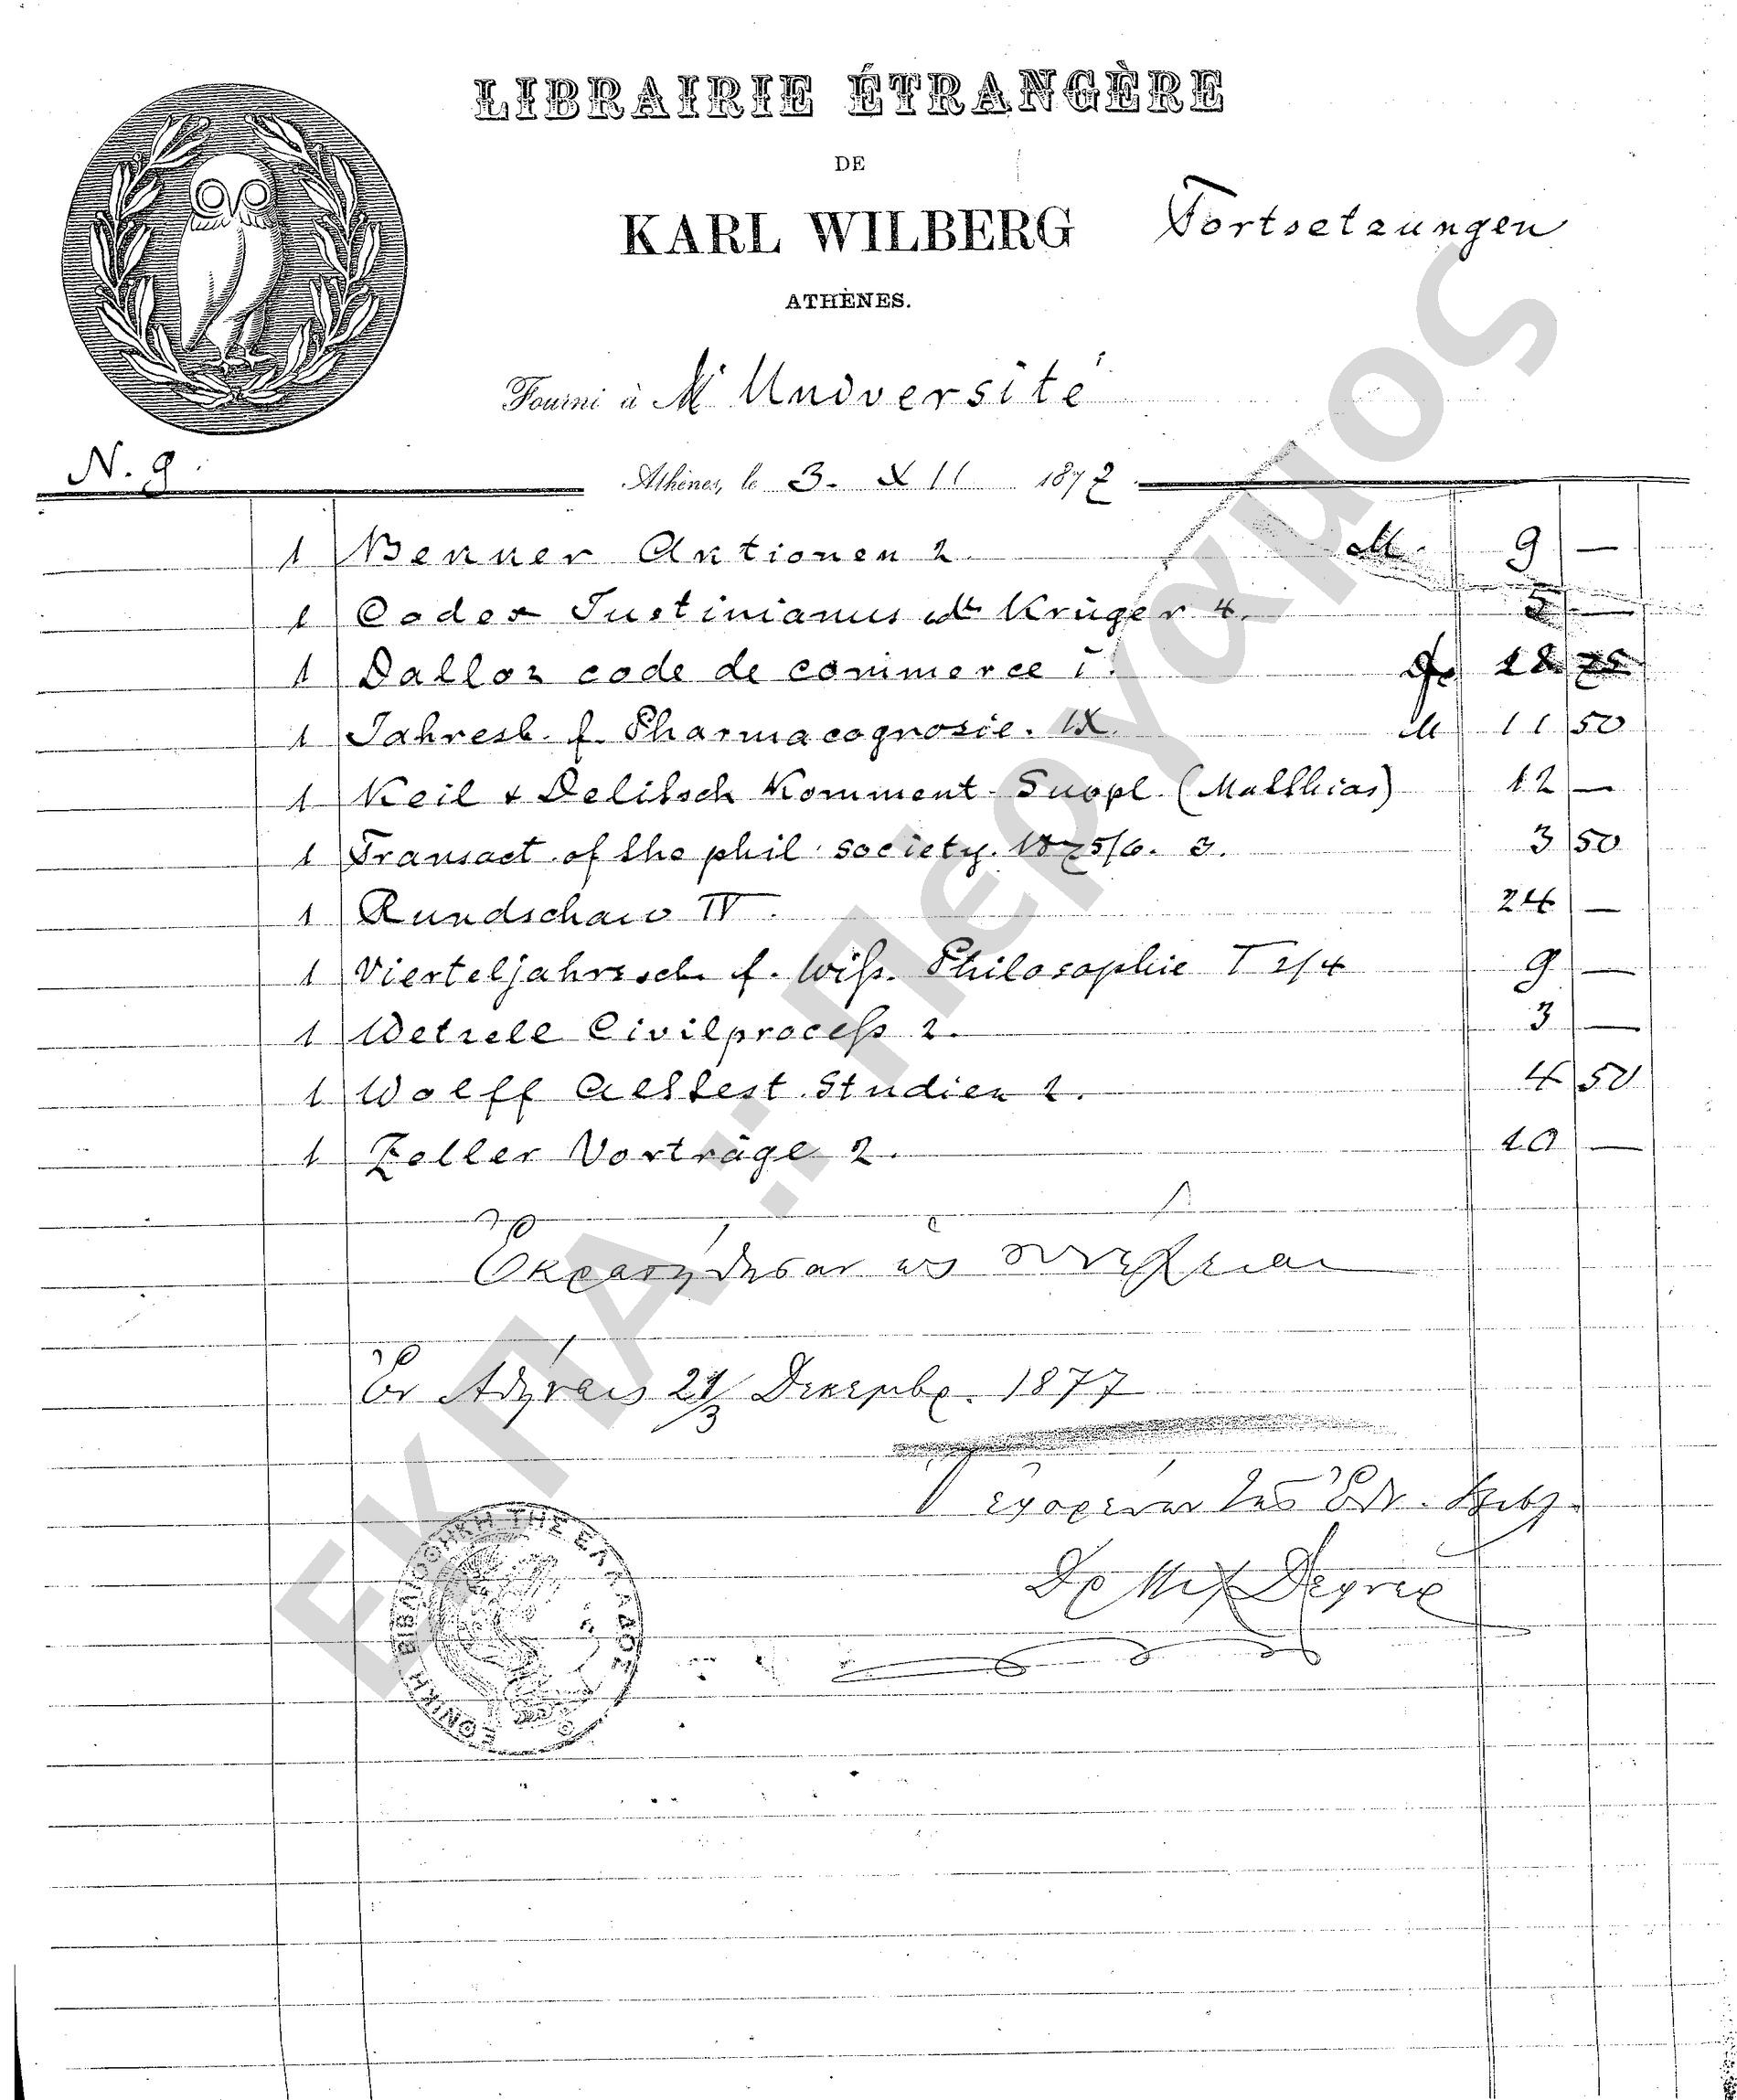 LIBRAIRIE ÉTRANGÈRE
DE
KARL WILBERG Fortsetzungen
ATHÈNES.
Fourni à Mr Université
N. 9.
Athènes, le 3. XII 1877
1 Benner Aktionen 2 M. 9 —
1 Codex Justinianus Krüger 4. 5 —
1 Dalloz code de commerce 1. fr 18 75
1 Jahresb. f. Pharmacognosie. IX. M 11 50
1 Keil & Delitsch Komment. Suppl. (Matthias) 12 —
1 Transact. of the phil. society. 1875/6. 3. 3 50
1 Rundschau IV. 24 —
1 Vierteljahrssch. f. Wiss. Philosophie I 2/4 9 —
1 Wetzell Civilprocess 2. 3 —
1 Wolff Alttest. Studien 2. 4 50
1 Zeller Vorträge 2. 10 —
Ἐκρατήθησαν ὡς συνέχειαι
Ἐν Ἀθήναις 21/3 Δεκεμβρ. 1877
ἐφορεύων τῆς Ἐθν. Βιβλ.
ΕΘΝΙΚΗ ΒΙΒΛΙΟΘΗΚΗ ΤΗΣ ΕΛΛΑΔΟΣ
ΕΚΠΑ...Περγαμος